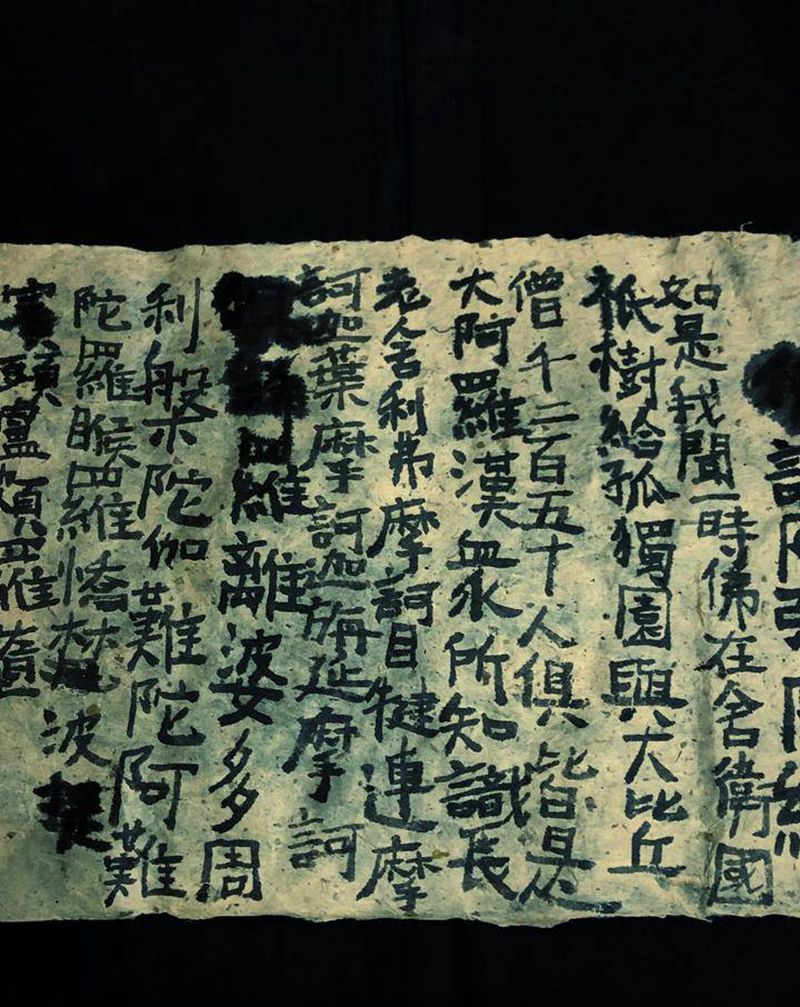 說阿弥陀經
如是我聞一時佛在舍衛國
祇樹給孤獨園與大比丘
僧千二百五十人俱皆是
大阿羅漢眾所知識長
老舍利弗摩訶目犍連摩
訶迦葉摩訶迦旃延摩訶
羅離婆多周
利槃陀伽難陀阿難
陀羅睺羅憍梵波提
賓頭盧頗羅墮